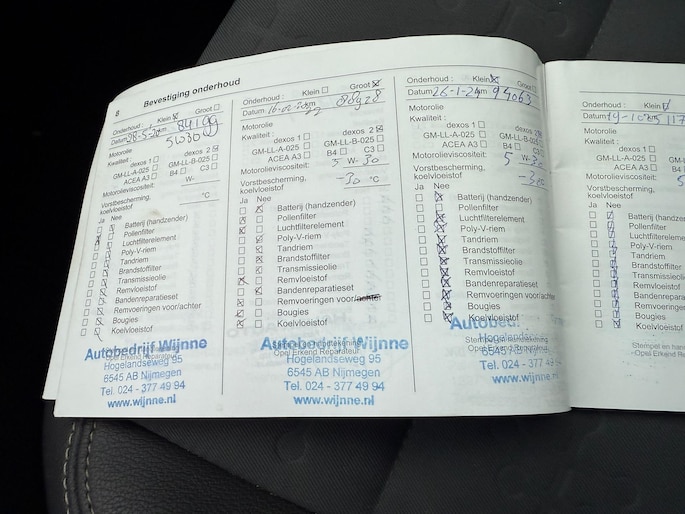 8
Bevestiging onderhoud
Onderhoud: Klein Groot
Datum km 84199
5W30
Motorolie
Kwaliteit: dexos 1 dexos 2
GM-LL-A-025 GM-LL-B-025
ACEA A3 B4 C3
Motorolieviscositeit: W-
Vorstbescherming, koelvloeistof °C
Ja Nee
Batterij (handzender)
Pollenfilter
Luchtfilterelement
Poly-V-riem
Tandriem
Brandstoffilter
Transmissieolie
Remvloeistof
Bandenreparatieset
Remvoeringen voor/achter
Bougies
Koelvloeistof
Autobedrijf Wijnne
Opel Erkend Reparateur
Hogelandseweg 95
6545 AB Nijmegen
Tel. 024 - 377 49 94
www.wijnne.nl
Onderhoud: Klein Groot
Datum km
Motorolie
Kwaliteit: dexos 1 dexos 2
GM-LL-A-025 GM-LL-B-025
ACEA A3 B4 C3
Motorolieviscositeit: 5 W- 30
Vorstbescherming, koelvloeistof -30 °C
Ja Nee
Batterij (handzender)
Pollenfilter
Luchtfilterelement
Poly-V-riem
Tandriem
Brandstoffilter
Transmissieolie
Remvloeistof
Bandenreparatieset
Remvoeringen voor/achter
Bougies
Koelvloeistof
Autobedrijf Wijnne
Opel Erkend Reparateur
Hogelandseweg 95
6545 AB Nijmegen
Tel. 024 - 377 49 94
www.wijnne.nl
Onderhoud: Klein Groot
Datum 26-1-24 km 94063
Motorolie
Kwaliteit: dexos 1 dexos 2
GM-LL-A-025 GM-LL-B-025
ACEA A3 B4 C3
Motorolieviscositeit: 5 W- 30
Vorstbescherming, koelvloeistof
Ja Nee
Batterij (handzender)
Pollenfilter
Luchtfilterelement
Poly-V-riem
Tandriem
Brandstoffilter
Transmissieolie
Remvloeistof
Bandenreparatieset
Remvoeringen voor/achter
Bougies
Koelvloeistof
Autobed
Stempel en handtekening
Hogelandse
6545 AB Nijm
Tel. 024 - 377
www.wijnne
Onderhoud: Klein
Datum
Motorolie
Kwaliteit: dexos 1
GM-LL-A-025
ACEA A3
Motorolieviscositeit: 5
Vorstbescherming, koelvloeistof
Ja Nee
Batterij (handz
Pollenfilter
Luchtfilterelem
Poly-V-riem
Tandriem
Brandstoffilter
Transmissieol
Remvloeistof
Bandenrepara
Remvoeringen
Bougies
Koelvloeistof
Stempel en hand
Opel Erkend Repa